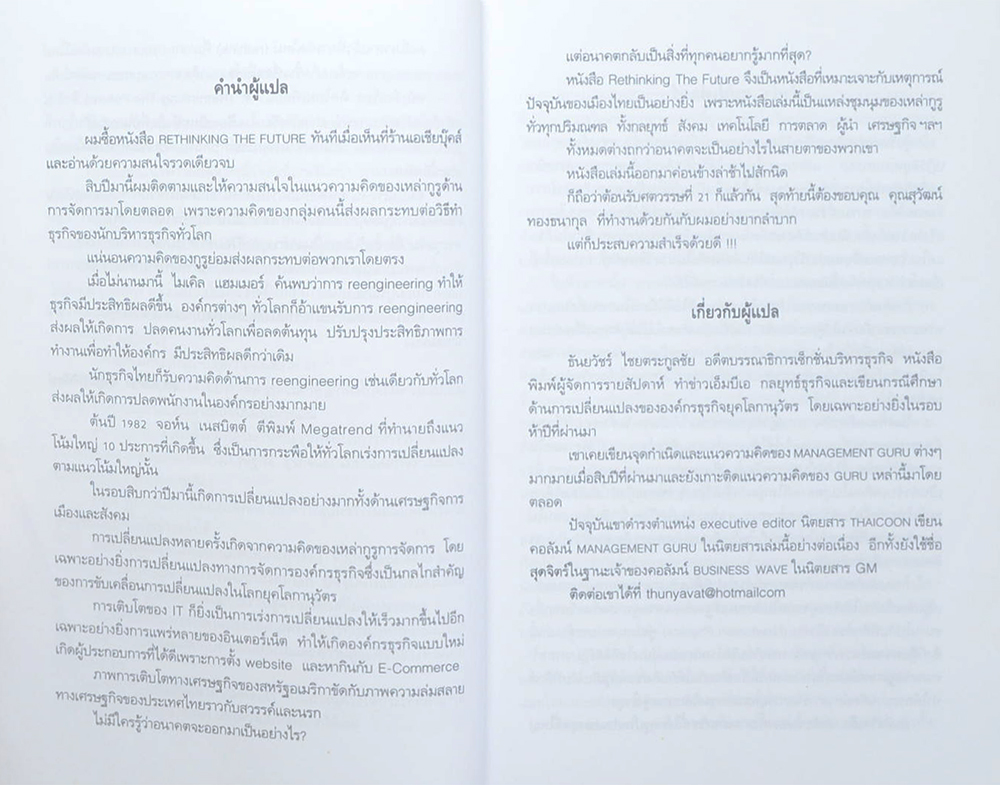 คำนำผู้แปล
ผมซื้อหนังสือ RETHINKING THE FUTURE ทันทีเมื่อเห็นที่ร้านเอเซียบุ๊คส์
และอ่านด้วยความสนใจรวดเดียวจบ
สิบปีมานี้ผมติดตามและให้ความสนใจในแนวความคิดของเหล่ากูรูด้าน
การจัดการมาโดยตลอด เพราะความคิดของกลุ่มคนนี้ส่งผลกระทบต่อวิธีทำ
ธุรกิจของนักบริหารธุรกิจทั่วโลก
แน่นอนความคิดของกูรูย่อมส่งผลกระทบต่อพวกเราโดยตรง
เมื่อไม่นานมานี้ ไมเคิล แฮมเมอร์ ค้นพบว่าการ reengineering ทำให้
ธุรกิจมีประสิทธิผลดีขึ้น องค์กรต่างๆ ทั่วโลกก็อ้าแขนรับการ reengineering
ส่งผลให้เกิดการ ปลดคนงานทั่วโลกเพื่อลดต้นทุน ปรับปรุงประสิทธิภาพการ
ทำงานเพื่อทำให้องค์กร มีประสิทธิผลดีกว่าเดิม
นักธุรกิจไทยก็รับความคิดด้านการ reengineering เช่นเดียวกับทั่วโลก
ส่งผลให้เกิดการปลดพนักงานในองค์กรอย่างมากมาย
ต้นปี 1982 จอห์น เนสบิตต์ ตีพิมพ์ Megatrend ที่ทำนายถึงแนว
โน้มใหญ่ 10 ประการที่เกิดขึ้น ซึ่งเป็นการกระพือให้ทั่วโลกเร่งการเปลี่ยนแปลง
ตามแนวโน้มใหญ่นั้น
ในรอบสิบกว่าปีมานี้เกิดการเปลี่ยนแปลงอย่างมากทั้งด้านเศรษฐกิจการ
เมืองและสังคม
การเปลี่ยนแปลงหลายครั้งเกิดจากความคิดของเหล่ากูรูการจัดการ โดย
เฉพาะอย่างยิ่งการเปลี่ยนแปลงทางการจัดการองค์กรธุรกิจซึ่งเป็นกลไกสำคัญ
ของการขับเคลื่อนการเปลี่ยนแปลงในโลกยุคโลกานุวัตร
การเติบโตของ IT ก็ยิ่งเป็นการเร่งการเปลี่ยนแปลงให้เร็วมากขึ้นไปอีก
เฉพาะอย่างยิ่งการแพร่หลายของอินเตอร์เน็ต ทำให้เกิดองค์กรธุรกิจแบบใหม่
เกิดผู้ประกอบการที่ได้ดีเพราะการตั้ง website และหากินกับ E-Commerce
ภาพการเติบโตทางเศรษฐกิจของสหรัฐอเมริกาขัดกับภาพความล่มสลาย
ทางเศรษฐกิจของประเทศไทยราวกับสวรรค์และนรก
ไม่มีใครรู้ว่าอนาคตจะออกมาเป็นอย่างไร?
แต่อนาคตกลับเป็นสิ่งที่ทุกคนอยากรู้มากที่สุด?
หนังสือ Rethinking The Future จึงเป็นหนังสือที่เหมาะเจาะกับเหตุการณ์
ปัจจุบันของเมืองไทยเป็นอย่างยิ่ง เพราะหนังสือเล่มนี้เป็นแหล่งชุมนุมของเหล่ากูรู
ทั่วทุกปริมณฑล ทั้งกลยุทธ์ สังคม เทคโนโลยี การตลาด ผู้นำ เศรษฐกิจ ฯลฯ
ทั้งหมดต่างถกว่าอนาคตจะเป็นอย่างไรในสายตาของพวกเขา
หนังสือเล่มนี้ออกมาค่อนข้างล่าช้าไปสักนิด
ก็ถือว่าต้อนรับศตวรรษที่ 21 ก็แล้วกัน สุดท้ายนี้ต้องขอบคุณ คุณสุวัฒน์
ทองธนากุล ที่ทำงานด้วยกันกับผมอย่างยากลำบาก
แต่ก็ประสบความสำเร็จด้วยดี !!!
เกี่ยวกับผู้แปล
ธันยวัชร์ ไชยตระกูลชัย อดีตบรรณาธิการเซ็กชั่นบริหารธุรกิจ หนังสือ
พิมพ์ผู้จัดการรายสัปดาห์ ทำข่าวเอ็มบีเอ กลยุทธ์ธุรกิจและเขียนกรณีศึกษา
ด้านการเปลี่ยนแปลงขององค์กรธุรกิจยุคโลกานุวัตร โดยเฉพาะอย่างยิ่งในรอบ
ห้าปีที่ผ่านมา
เขาเคยเขียนจุดกำเนิดและแนวความคิดของ MANAGEMENT GURU ต่างๆ
มากมายเมื่อสิบปีที่ผ่านมาและยังเกาะติดแนวความคิดของ GURU เหล่านี้มาโดย
ตลอด
ปัจจุบันเขาดำรงตำแหน่ง executive editor นิตยสาร THAICOON เขียน
คอลัมน์ MANAGEMENT GURU ในนิตยสารเล่มนี้อย่างต่อเนื่อง อีกทั้งยังใช้ชื่อ
สุดจิตร์ในฐานะเจ้าของคอลัมน์ BUSINESS WAVE ในนิตยสาร GM
ติดต่อเขาได้ที่ thunyavat@hotmail.com